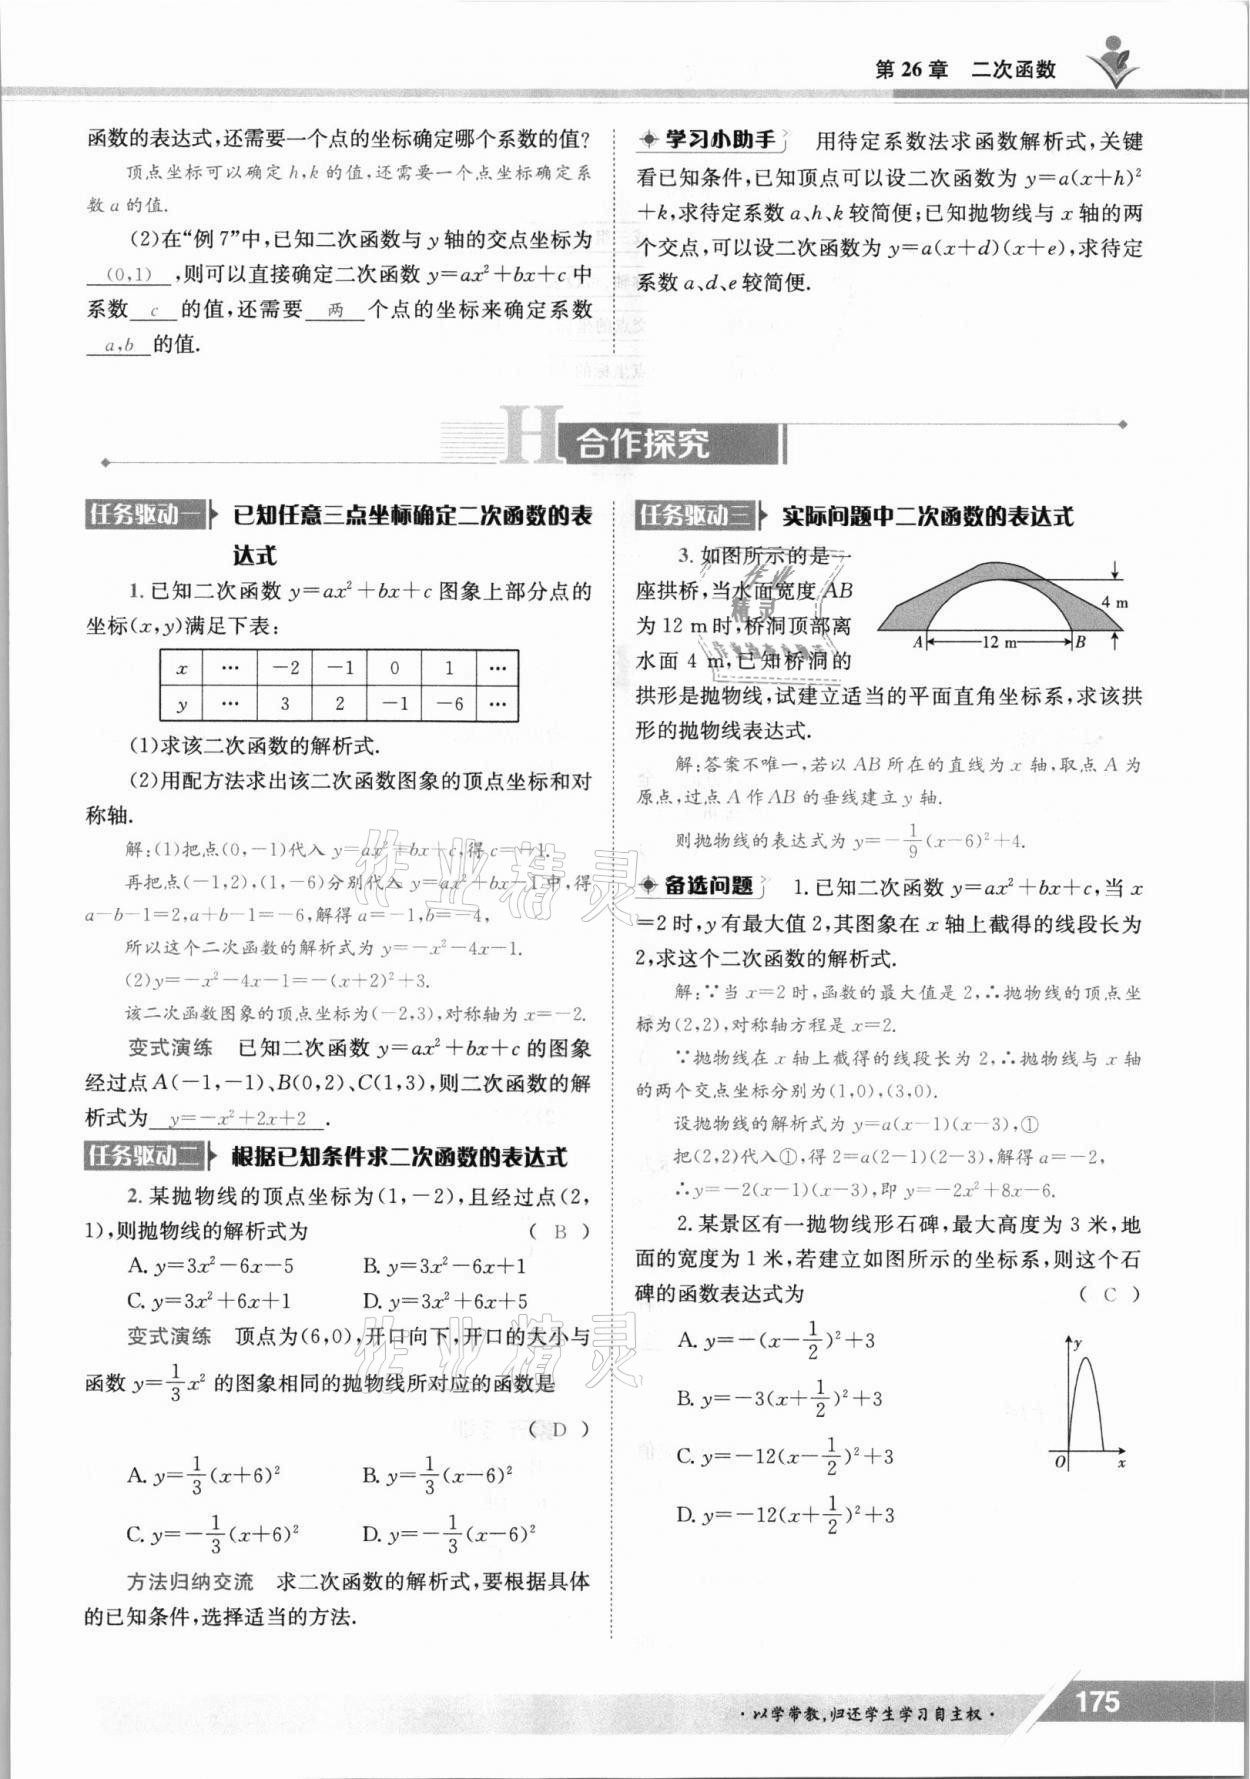 第26章 二次函数
函数的表达式,还需要一个点的坐标确定哪个系数的值?
顶点坐标可以确定h,k的值,还需要一个点坐标确定系
数a的值.
(2)在“例7”中,已知二次函数与y轴的交点坐标为
(0,1),则可以直接确定二次函数y=ax²+bx+c中
系数 c 的值,还需要 两 个点的坐标来确定系数
a,b 的值.
学习小助手 用待定系数法求函数解析式,关键
看已知条件,已知顶点可以设二次函数为y=a(x+h)²
+k,求待定系数a、h、k较简便;已知抛物线与x轴的两
个交点,可以设二次函数为y=a(x+d)(x+e),求待定
系数a、d、e较简便.
H 合作探究
任务驱动一 已知任意三点坐标确定二次函数的表
达式
1.已知二次函数y=ax²+bx+c图象上部分点的
坐标(x,y)满足下表:
x … -2 -1 0 1 …
y … 3 2 -1 -6 …
(1)求该二次函数的解析式.
(2)用配方法求出该二次函数图象的顶点坐标和对
称轴.
解:(1)把点(0,-1)代入y=ax²+bx+c,得c=-1.
再把点(-1,2),(1,-6)分别代入y=ax²+bx-1中,得
a-b-1=2,a+b-1=-6,解得a=-1,b=-4,
所以这个二次函数的解析式为y=-x²-4x-1.
(2)y=-x²-4x-1=-(x+2)²+3.
该二次函数图象的顶点坐标为(-2,3),对称轴为x=-2.
变式演练 已知二次函数y=ax²+bx+c的图象
经过点A(-1,-1)、B(0,2)、C(1,3),则二次函数的解
析式为 y=-x²+2x+2 .
任务驱动二 根据已知条件求二次函数的表达式
2.某抛物线的顶点坐标为(1,-2),且经过点(2,
1),则抛物线的解析式为 ( B )
A. y=3x²-6x-5 B. y=3x²-6x+1
C. y=3x²+6x+1 D. y=3x²+6x+5
变式演练 顶点为(6,0),开口向下,开口的大小与
函数y=1/3x²的图象相同的抛物线所对应的函数是
( D )
A. y=1/3(x+6)² B. y=1/3(x-6)²
C. y=-1/3(x+6)² D. y=-1/3(x-6)²
方法归纳交流 求二次函数的解析式,要根据具体
的已知条件,选择适当的方法.
任务驱动三 实际问题中二次函数的表达式
3.如图所示的是一
座拱桥,当水面宽度AB
为12 m时,桥洞顶部离
水面4 m,已知桥洞的
拱形是抛物线,试建立适当的平面直角坐标系,求该拱
形的抛物线表达式.
4 m
A 12 m B
解:答案不唯一,若以AB所在的直线为x轴,取点A为
原点,过点A作AB的垂线建立y轴.
则抛物线的表达式为y=-1/9(x-6)²+4.
备选问题 1.已知二次函数y=ax²+bx+c,当x
=2时,y有最大值2,其图象在x轴上截得的线段长为
2,求这个二次函数的解析式.
解:∵当x=2时,函数的最大值是2,∴抛物线的顶点坐
标为(2,2),对称轴方程是x=2.
∵抛物线在x轴上截得的线段长为2,∴抛物线与x轴
的两个交点坐标分别为(1,0),(3,0).
设抛物线的解析式为y=a(x-1)(x-3),①
把(2,2)代入①,得2=a(2-1)(2-3),解得a=-2,
∴y=-2(x-1)(x-3),即y=-2x²+8x-6.
2.某景区有一抛物线形石碑,最大高度为3米,地
面的宽度为1米,若建立如图所示的坐标系,则这个石
碑的函数表达式为 ( C )
A. y=-(x-1/2)²+3
B. y=-3(x+1/2)²+3
C. y=-12(x-1/2)²+3
D. y=-12(x+1/2)²+3
y
O x
作业精灵
作业精灵
作业精灵
·以学带教,归还学生学习自主权·
175